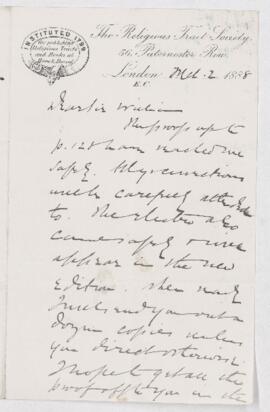 INSTITUTED 1799
The Religious Tract Society
56, Paternoster Row,
London Mch. 2 1888
E.C.
Dear Sir William
The proofs up to
p. 128 have reached me
safely. All yr corrections
will be carefully attended
to. The electro also
came safely & will
appear in the new
edition. When ready
I will send you out a
dozen copies unless
you direct otherwise.
I hope to get all the
proof off to you in the